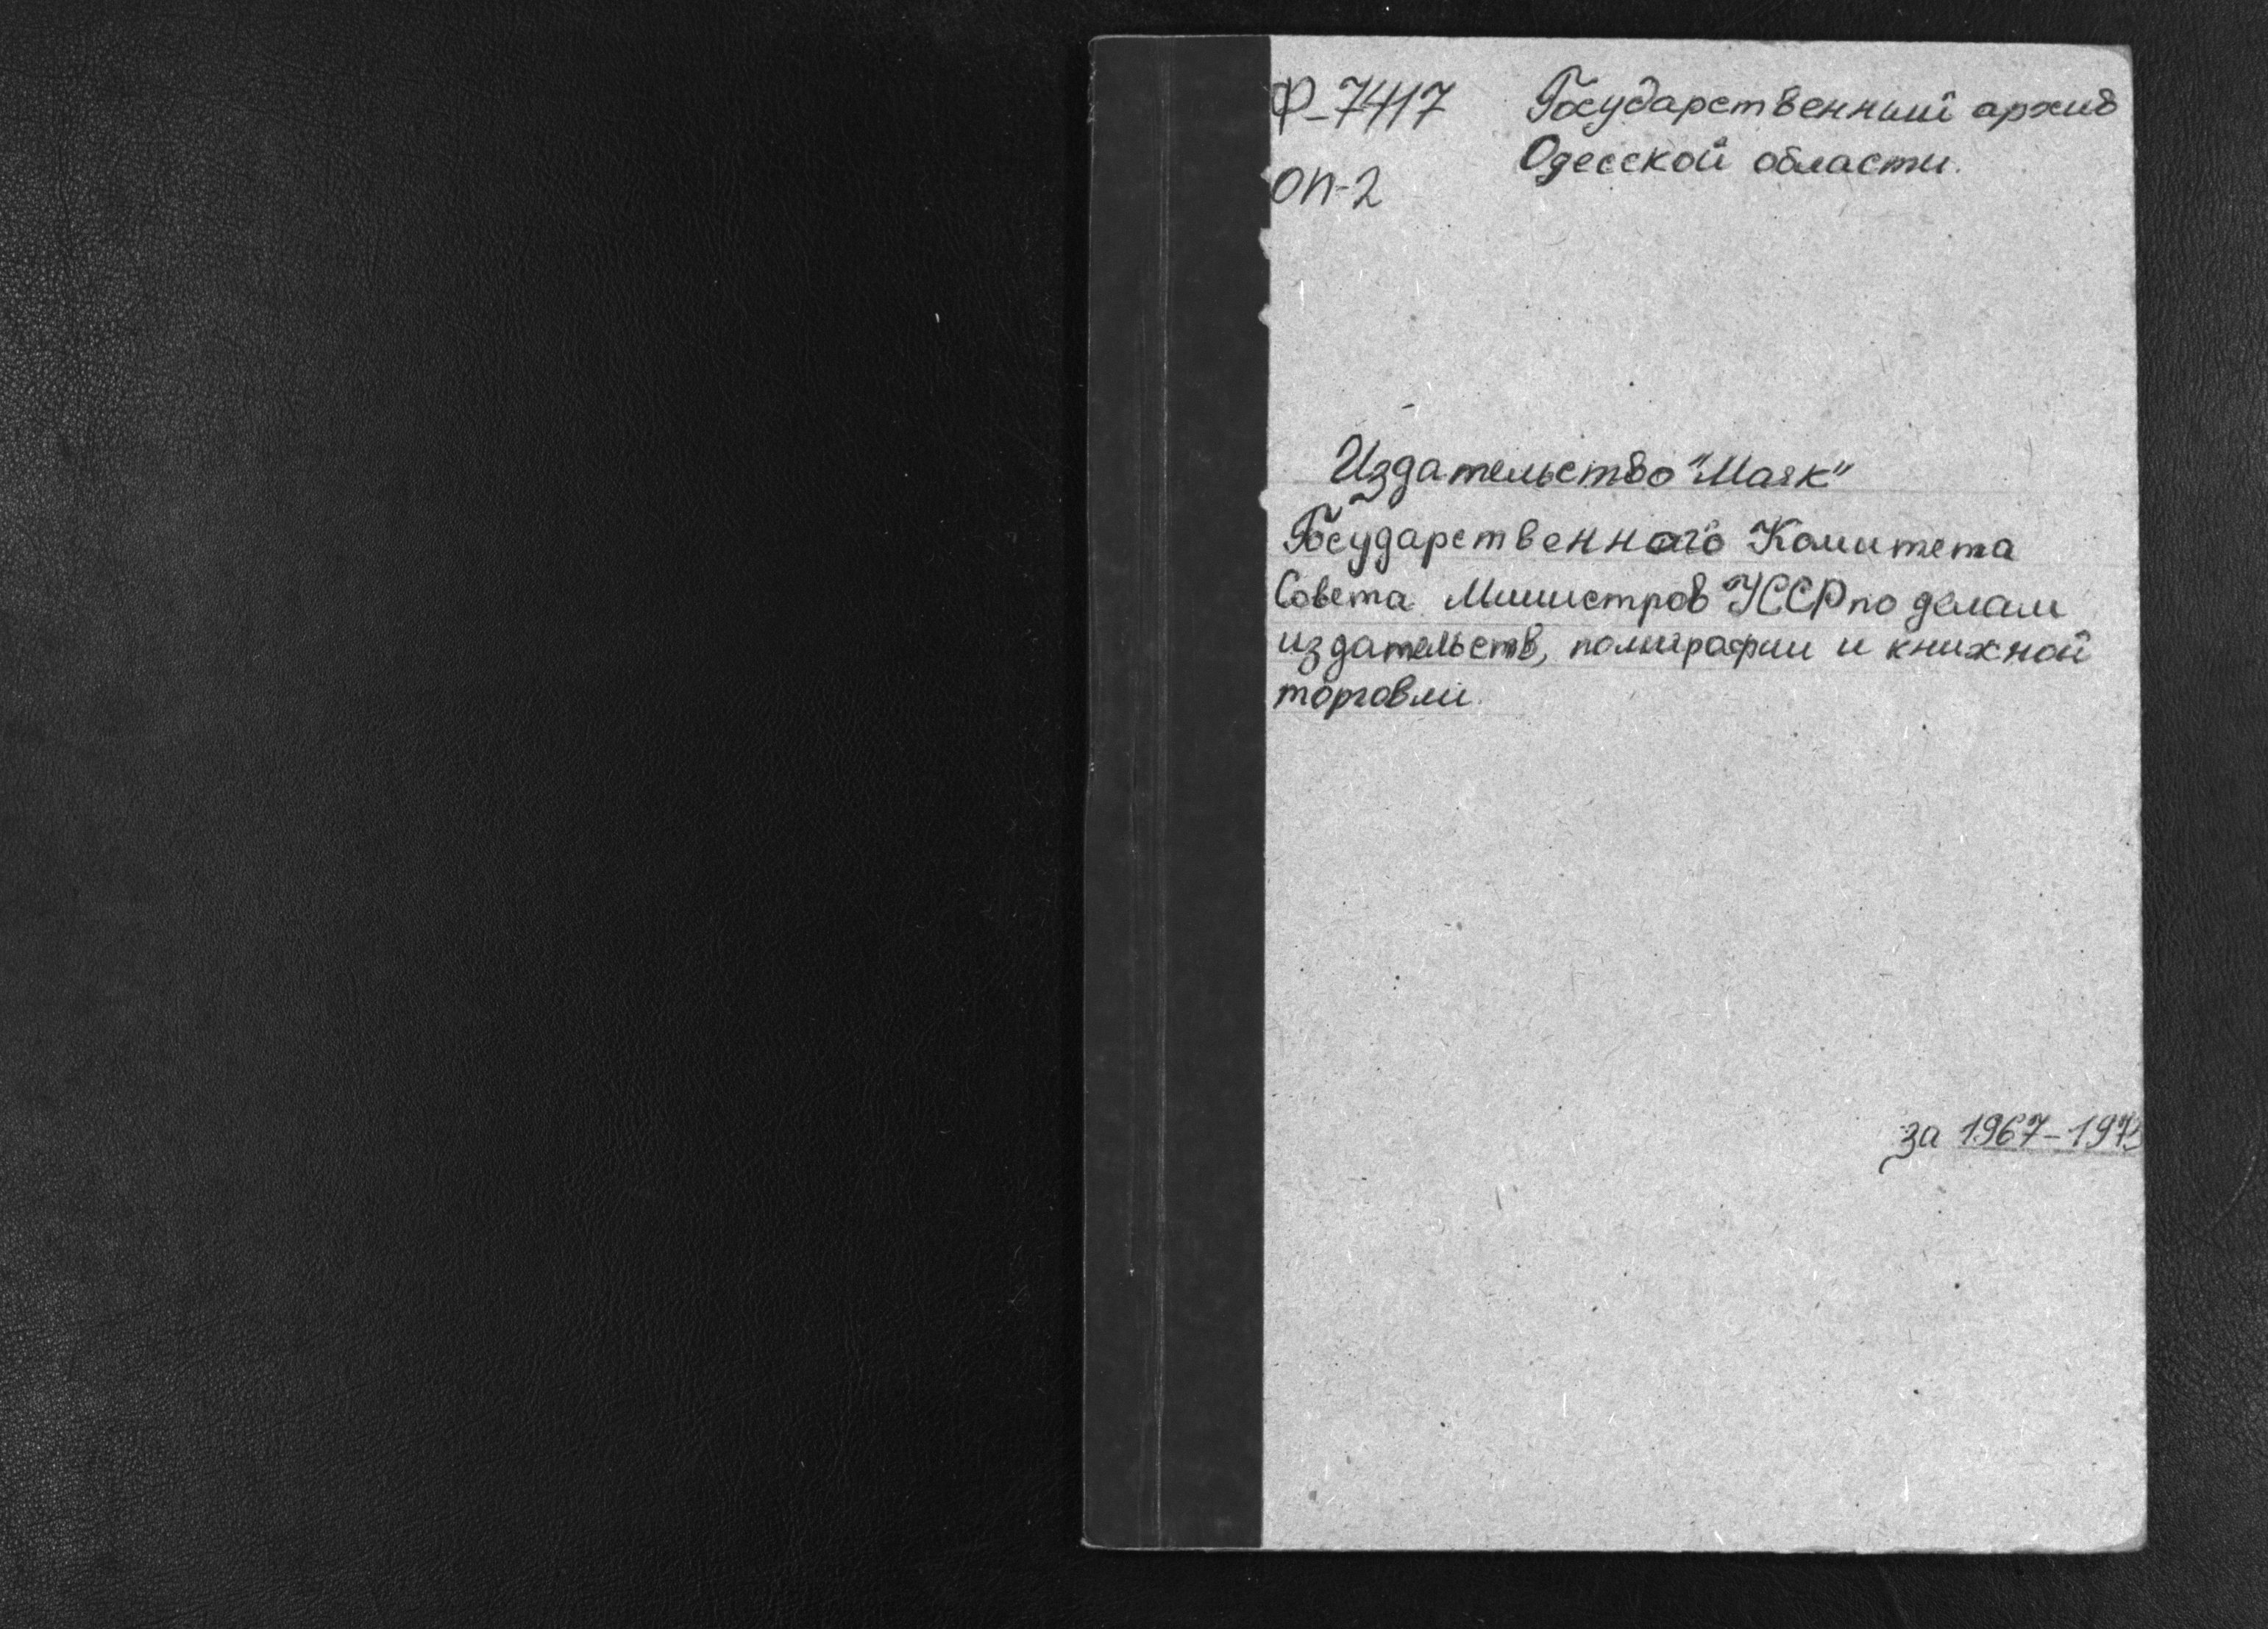 Ф-7417 Государственный архив
Одесской области.
ОП-2
Издательство "Маяк"
Государственного Комитета
Совета Министров УССР по делам
издательств, полиграфии и книжной
торговли.
за 1967-